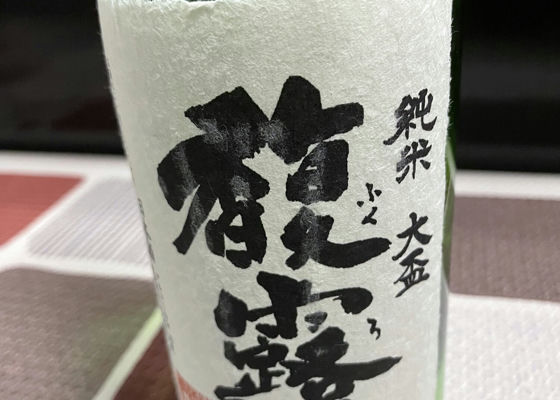 純米 大盃
馥露
ふく ろ